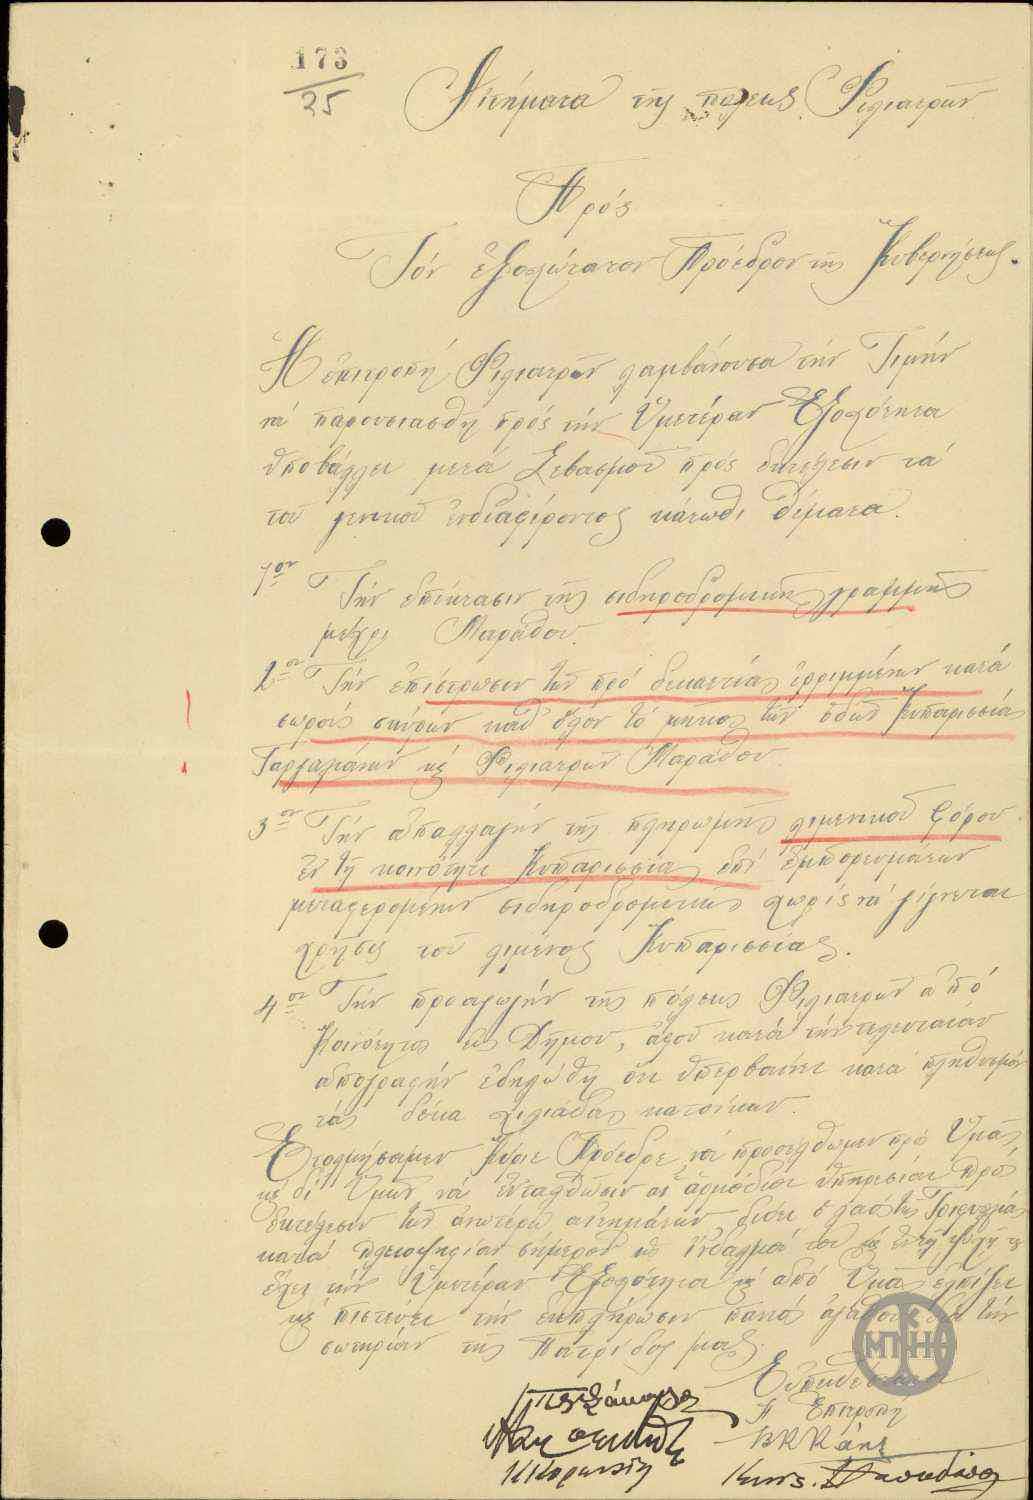 173
35
Αἰτήματα τῆς πόλεως Φιλιατρῶν
Πρός
Τόν ἐξοχώτατον Πρόεδρον τῆς Κυβερνήσεως.
Ἡ ἐπιτροπή Φιλιατρῶν λαμβάνουσα τήν Τιμήν
νά παρουσιασθῇ πρός τήν Ὑμετέραν Ἐξοχότητα
ὑποβάλλει μετά Σεβασμοῦ πρός ἐκτέλεσιν τά
τοῦ γενικοῦ ἐνδιαφέροντος κάτωθι θέματα.
1ον Τήν ἐπέκτασιν τῆς σιδηροδρομικῆς γραμμῆς
μέχρι Μαράθου.
2ον Τήν ἐπίστρωσιν τῶν πρό δεκαετίας ἐρριμμένων κατά
σωρούς σκύρων καθ' ὅλον τό μῆκος τῶν ὁδῶν Κυπαρισσίας
Γαργαλιάνων κ Φιλιατρῶν Μαράθου.
3ον Τήν ἀπαλλαγήν τῆς πληρωμῆς λιμενικοῦ φόρου
ἐν τῇ κοινότητι Κυπαρισσίας ἐπί ἐμπορευμάτων
μεταφερομένων σιδηροδρομικῶς χωρίς νά γίγνεται
χρῆσις τοῦ λιμένος Κυπαρισσίας.
4ον Τήν προαγωγήν τῆς πόλεως Φιλιατρῶν ἀπό
Κοινότητος εἰς Δῆμον, ἀφοῦ κατά τήν τελευταίαν
ἀπογραφήν ἐδηλώθη ὅτι ὑπερβαίνει κατά πληθυσμόν
τάς δέκα χιλιάδας κατοίκων.
Ἐτολμήσαμεν Κύριε Πρόεδρε νά προσέλθωμεν πρό Ὑμᾶς
κ δι' Ὑμῶν νά ἐνταλθῶσιν αἱ ἁρμόδιαι ὑπηρεσίαι πρός
ἐκτέλεσιν τῶν ἀνωτέρω αἰτημάτων διότι ὁ λαός τῆς Τριφυλίας
κατά πλειοψηφίαν σήμερον ὡς ἴνδαλμά του κ
ἔχει τήν Ὑμετέραν Ἐξοχότητα κ ἀπό Ὑμᾶς ἐλπίζει
κ πιστεύει τήν ἐκπλήρωσιν παντός ἀγαθοῦ διά τήν
σωτηρίαν τῆς Πατρίδος μας.
Εὐπειθέστατοι
Ἡ Ἐπιτροπή
ΜΠΚΗ